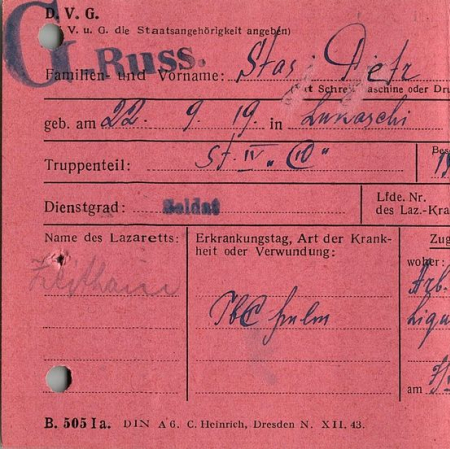 D. V. G.
V. u. G. die Staatsangehörigkeit angeben)
G.-Russ.
Familien- und Vorname: Stasi Pietr
mit Schreibmaschine oder Dru
geb. am 22. 9. 19. in Lunaschi
Truppenteil: St. IV „D"
Bes
Dienstgrad: Soldat
Lfde. Nr.
des Laz.-Kra
Name des Lazaretts: Erkrankungstag, Art der Krank-
heit oder Verwundung:
Zug
woher:
Zeithain
Arb.
Tbc pulm
Liqu
am
B. 505 I a. DIN A 6. C. Heinrich, Dresden N. XII. 43.